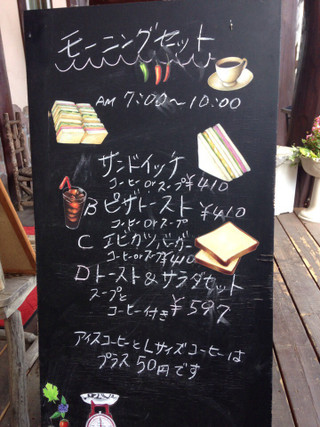 モーニングセット
AM 7:00〜10:00
サンドイッチ
コーヒーorスープ¥410
B ピザトースト ¥410
コーヒーorスープ
C エビカツバーガー
コーヒーorスープ¥410
D トースト&サラダセット
スープと
コーヒー付き ¥597
アイスコーヒーとLサイズコーヒーは
プラス50円です